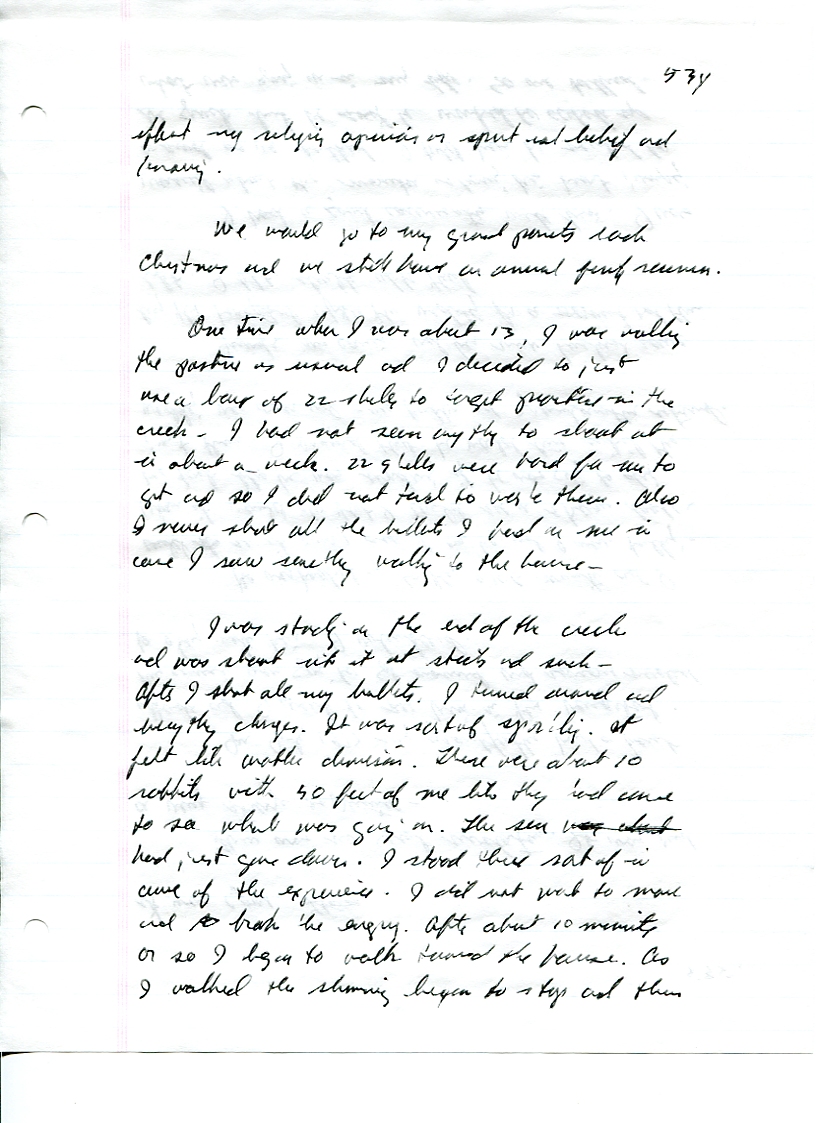 534
effect my religis opinion or spirit ual belief and
knowing.
We would go to my grand parents each
Christmas and we still have an annual family reunion.
One time when I was about 13, I was walking
the pasture as usual and I decided to just
use a box of 22 shells to target practice in the
creek - I had not seen anythg to shoot at
in about a week. 22 shells were hard for me to
get and so I did not tend to waste them. Also
I never shot all the bullets I had on me in
case I saw somethg walking to the house -
I was standing on the end of the creek
and was shooting into it at sticks and such -
After I shot all my bullets, I turned around and
everythg changes. It was sort of sparkling. It
felt like another dimension. There were about 10
rabbits with 50 feet of me like they had come
to see what was going on. The sun
had just gone down. I stood there sort of in
awe of the experience. I did not want to move
and break the energy. After about 10 minutes
or so I began to walk toward the house. As
I walked the shimmering began to stop and then